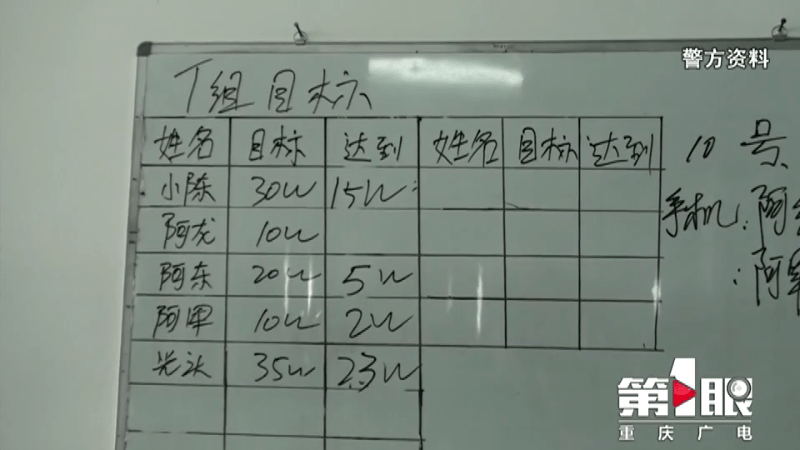 警方资料
T组目标
姓名 目标 达到 姓名 目标 达到
小陈 30W 15W
阿龙 10W
阿东 20W 5W
阿军 10W 2W
光头 35W 23W
10号
手机:阿
:阿
第1眼
重庆广电